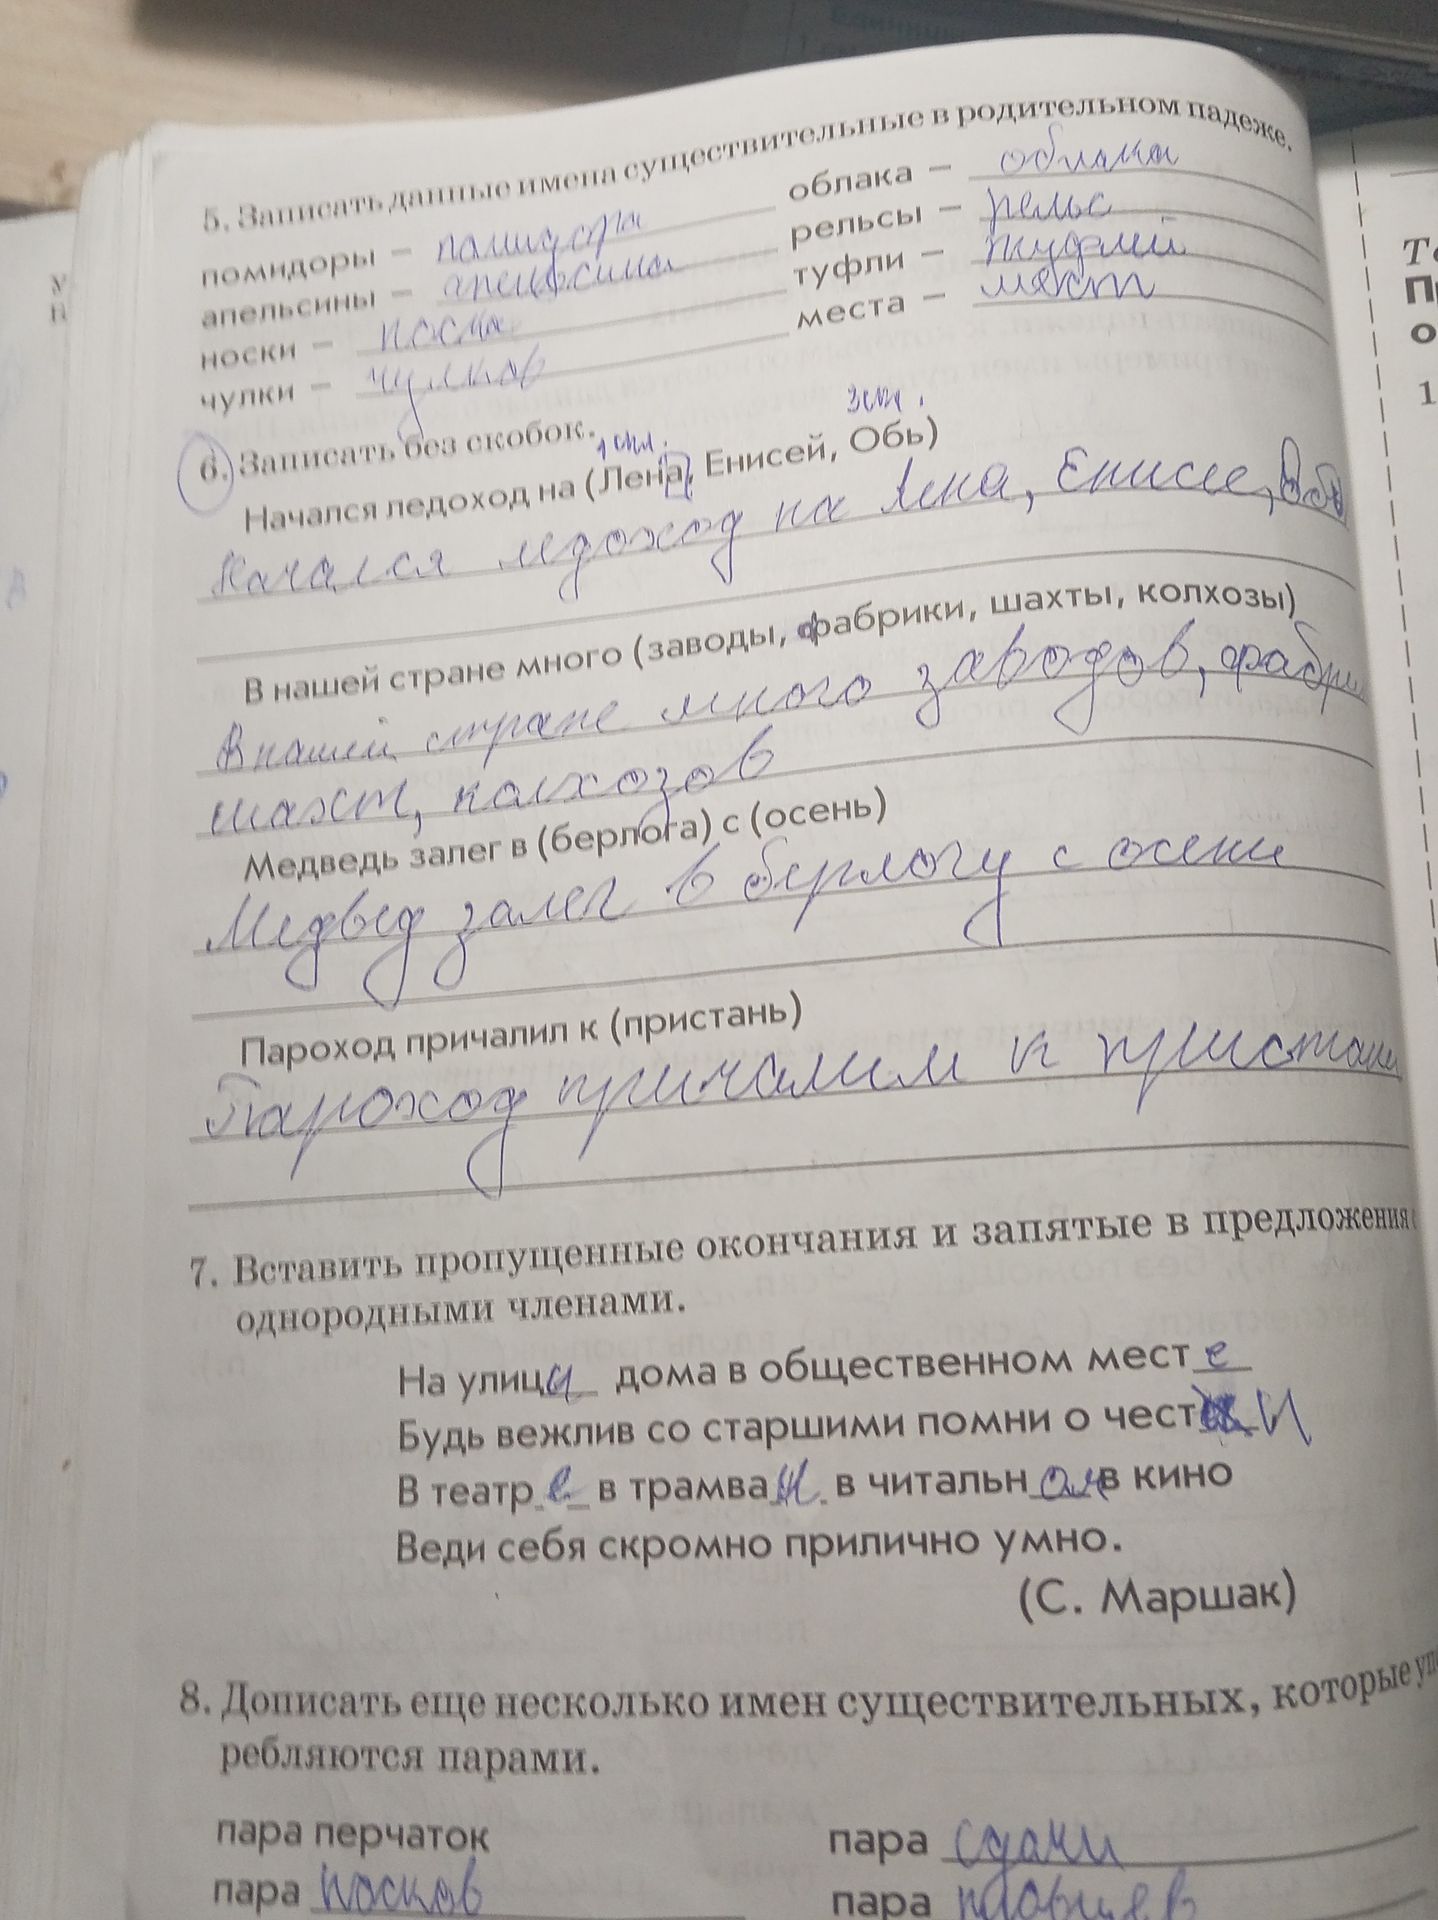 5. Записать данные имена существительные в родительном падеже.
помидоры – помидора облака – облака
апельсины – апельсина рельсы – рельс
носки – носка туфли – туфлей
чулки – чулков места – мест
6. Записать без скобок.
1 скл. 3 скл.
Начался ледоход на (Лена, Енисей, Обь)
Начался ледоход на Лена, Енисее,
В нашей стране много (заводы, фабрики, шахты, колхозы)
В нашей стране много заводов, фабрик
шахт, колхозов
Медведь залег в (берлога) с (осень)
Медвед залег в берлогу с осени
Пароход причалил к (пристань)
Пароход причалим к пристани
7. Вставить пропущенные окончания и запятые в предложения
однородными членами.
На улици дома в общественном месте
Будь вежлив со старшими помни о чести
В театре в трамваи в читальном в кино
Веди себя скромно прилично умно.
(С. Маршак)
8. Дописать еще несколько имен существительных, которые уп
ребляются парами.
пара перчаток пара
пара носков пара